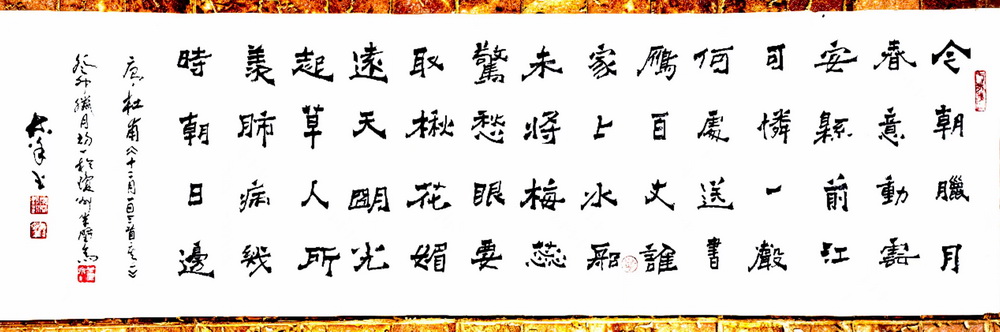 今朝臘月
春意動雲
安縣前江
可憐一聲
何處送書
鴈百丈誰
家上水船
未將梅蕊
驚愁眼要
取楸花媚
遠天明光
起草人所
羨肺病幾
時朝日邊
唐杜甫公十二月一日三首其一
癸卯臘月初一於瓊州